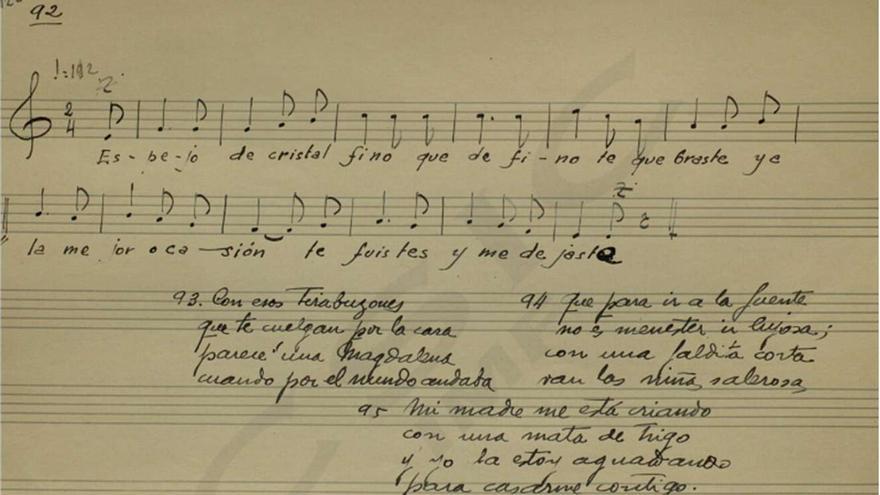 92
Es-be-jo de cristal fino que de fi-no te quebraste y a
la mejor oca-sión te fuistes y me dejaste
93. Con esos Tirabuzones
que te cuelgan por la cara
pareces una Magdalena
cuando por el mundo andaba
94 que para ir a la fuente
no es menester ir lujosa;
con una faldita corta
van las niñas salerosas
95 Mi madre me está criando
con una mata de trigo
y yo la estoy aguardando
para casarme contigo.